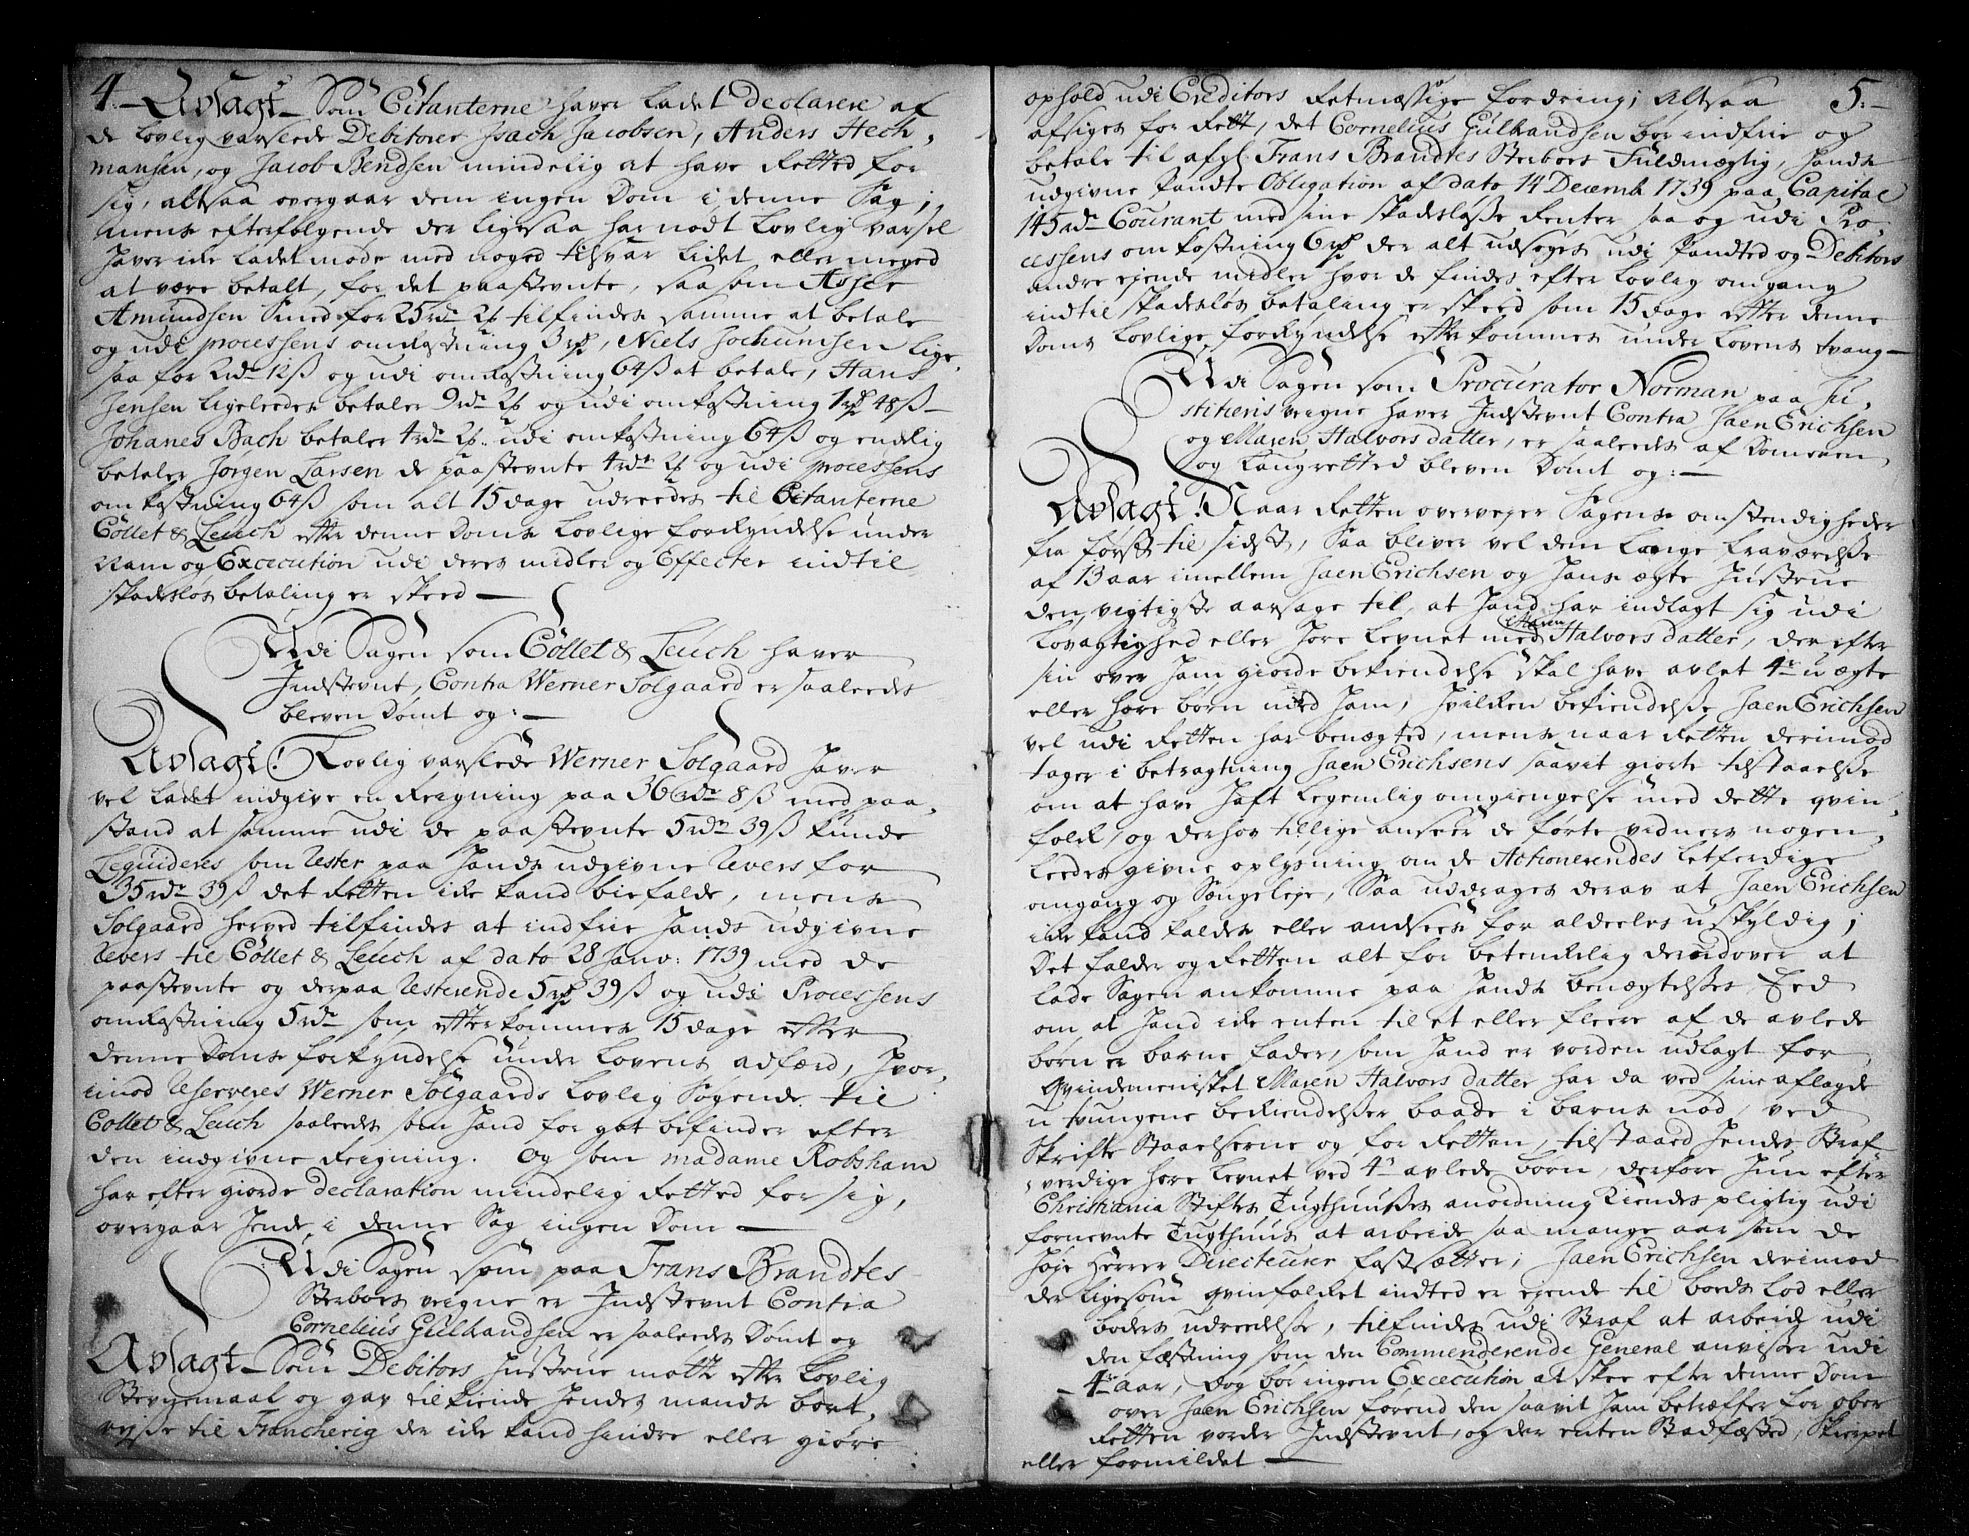 4. Avsagt Som Citanterne haver ladet declarere af
de lovlig varslede Debitorer Isach Jacobsen, Anders Hech,
mansen, og Jacob Bendsen mindelig at have Retted for
sig, altsaa overgaar dem ingen Dom i denne Sag;
mens efterfølgende der ligesaa har nødt lovlig varsel
haver icke ladet møde med noged tilsvar lidet eller meged
at være betalt, for det paastevnte, saasom Asser
Amundsen Smed for 25 rdr 2ß tilfindes samme at betale
og udi processens omkostning 3 rdr, Niels Jochumsen lige,
saa for 2 rdr 12ß og udi omkostning 64ß at betale, Hans
Jensen ligeleedes betaler 9 rdr 2ß og udi omkostning 1 rdr 48ß
Johanes Bach betaler 4 rdr 2ß udi omkostning 64ß og endelig
betaler Jørgen Larsen de paastevnte 4 rdr 2ß og udi processens
omkostning 64ß som alt 15 dage udreedes til Citanterne
Collet & Leuch efter denne Doms lovlige forkyndelse under
Nam og Excecution udi deres midler og Effecter indtil
skadesløs betaling er skeed
Udi Sagen som Collet & Leuch haver
Indstevnt, Contra Werner Solgaard er saaleedes
bleven Dømt og:
Avsagt! Lovlig varslede Werner Solgaard haver
vel ladet indgive en Reigning paa 36 rdr 8ß med paa,
stand at samme udi de paastevnte 5 rdr 39ß kunde
Leqvideres som Rester paa hands udgivne Revers for
35 rdr 39ß det Retten icke kand biefalde, mens
Solgaard herved tilfindes at indfrie hands udgivne
Revers til Collet & Leuch af dato 28 Janv: 1739 med de
paastevnte og derpaa Resterende 5 rdr 39ß og udi Processens
omkostning 5 rdr som efterkommes 15 dage efter
denne Doms forkyndelse under Lovens adfærd, hvor,
imod Reserveres Werner Solgaards lovlig Søgende til
Collet & Leuch saaleedes som hand for got befinder efter
den indgivne Reigning. Og som madame Robsham
har efter giorde declaration mindelig Retted for sig,
overgaar hende i denne Sag ingen Dom
Udi Sagen som paa Frans Brandtes
Sterboes veigne er Indstevnt Contra
Cornelius Gulbrandsen er saaleedes Dømt og
Avsagt Som Debitors Hustrue møtte efter lovlig
Stevnemaal og gav tilkiende hendes mands bort,
reyse til Franchrig der icke kand hindre eller giøre
5.
ophold udi Creditors Retmæssige fordring; Altsaa
afsiges for Rett, det Cornelius Gulbrandsen bør indfrie og
betale til afgl. Frans Brandtes Sterboes Fuldmægtig, hands
udgivne Pandte Obligation af dato 14 Decemb. 1739 paa Capital
145 rdr Courant med sine skadesløsse Renter, saa og udi Pro,
cessens omkostning 6 rdr der alt udsøges udi Pandted og Debitors
andre eyende midler hvor de findes efter Lovlig omgang
indtil skadesløs betaling er skeed som 15 dage efter denne
Doms lovlige forkyndelse efterkommes under Lovens tvang
Udi Sagen som Procurator Norman paa Ju,
stitiens veigne haver Indstevnt Contra Jaen Erichsen
og Maren Halvorsdatter, er saaleedes af Domeren
og Laugretted bleven Dømt og:
Avsagt! Naar Retten overveyer Sagens omstendigheder
fra først til sidst, Saa bliver vel dem lange fraværelsse
af 13 aar imellem Jaen Erichsen og hans ægte Hustrue
den vigtigste aarsage til, at hand har indlagt sig udi
Løvagtighed eller hore levnet med Maren Halvorsdatter, der efter
sin over ham giorde bekiendelse skal have avlet 4re u ægte
eller hore børn med ham, hvilken bekiendelse Jaen Erichsen
vel udi Retten har benægted, mens naar Retten derimod
tager i betragtning Jaen Erichsens saavit giorte tilstaaelsse
om at have haft Legemlig omgiengelse med dette qvin,
folck, og derhos tillige anseer de førte vidners nogen,
leedes givne oplysning om de Actionerendes letferdige
omgang og Sengeleye, Saa uddrages derav at Jaen Erichsen
icke kand kaldes eller andsees for aldeeles uskyldig;
Det falder og Retten alt for betenkelig derudover at
lade Sagen ankomme paa hands benægtelsses Eed
om at hand icke enten til et eller fleere af de avlede
børn er barne fader, som hand er vorden udlagt for
Qvindemenisket Maren Halvorsdatter har da ved sine aflagde
utvungene bekiendelsser baade i barns nød, ved
Skrifte Staaelserne og for Retten, tilstaaed hendes Straf
verdige hore levnet ved 4re avlede børn, derfore hun efter
Christiania Stifts Tugthuusses anordning kiendes pligtig udi
fornevnte Tugthuus at arbeide saa mange aar som de
høye Herrer Directeurer fastsætter; Jaen Erichsen derimod
der ligesom qvinfolket indted er eyende til boeds Lod eller
bøders udreedelsse, tilfindes udi Straf at arbeide udi
den fæstning som den Commenderende General anvisser udi
4re aar, dog bør ingen Excecution at skee efter denne Dom
over Jaen Erichsen førend den saavit ham betræffer for over
Retten vorder Indstevnt, og der enten Stadfæsted, Skierpet
eller formildet